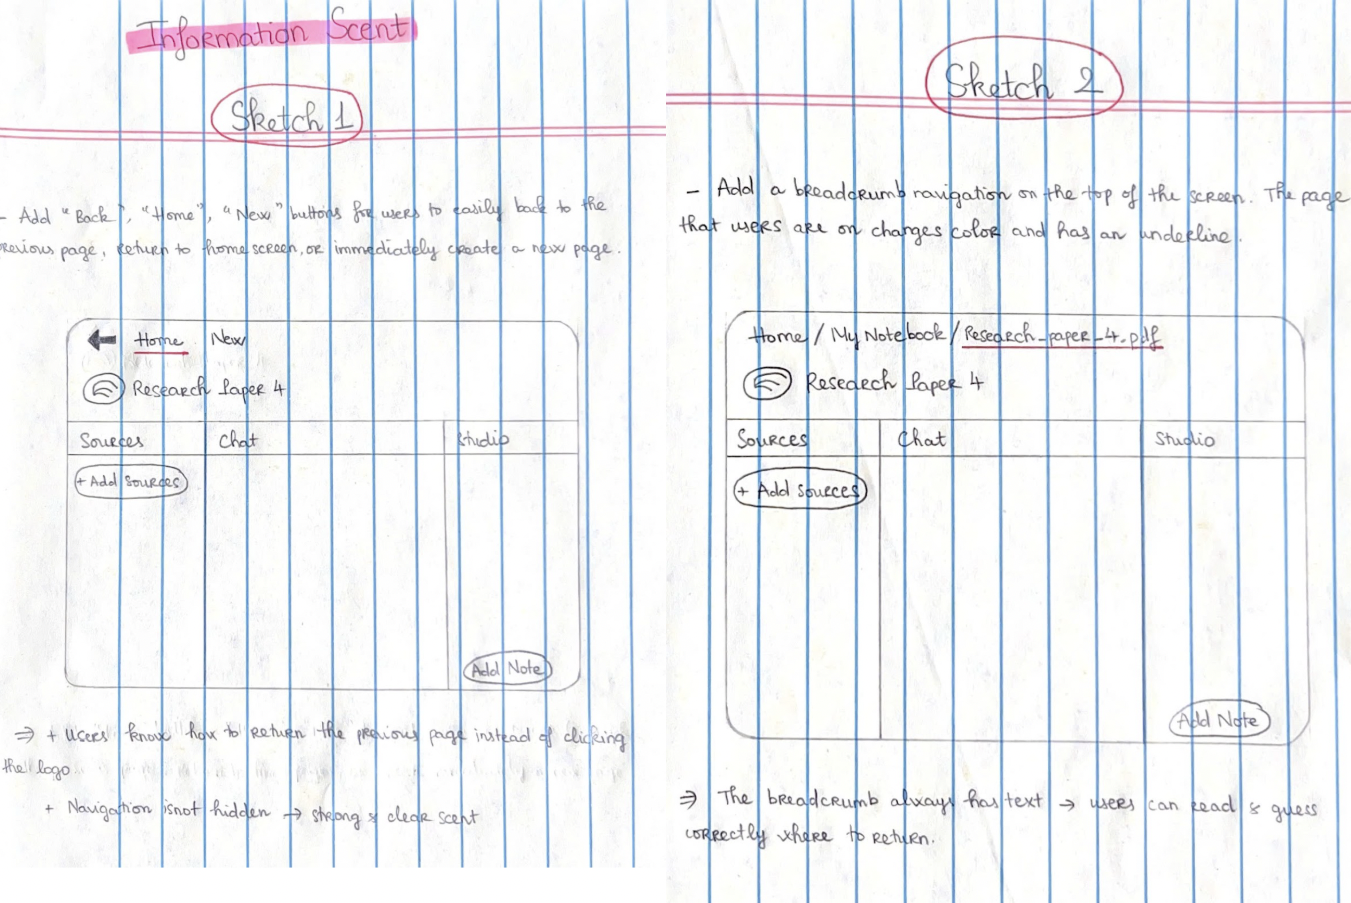 Information Scent
Sketch 1
- Add "Back", "Home", "New" buttons for users to easily back to the
previous page, return to home screen, or immediately create a new page.
Home New
Research Paper 4
Sources Chat Studio
+ Add Sources
Add Note
⇒ + Users know how to return the previous page instead of clicking
the logo
+ Navigation isnot hidden → strong & clear scent
Sketch 2
- Add a breadcrumb navigation on the top of the screen. The page
that users are on changes color and has an underline.
Home / My Notebook / Research_paper_4.pdf
Research Paper 4
Sources Chat Studio
+ Add sources
Add Note
⇒ The breadcrumb always has text → users can read & guess
correctly where to return.